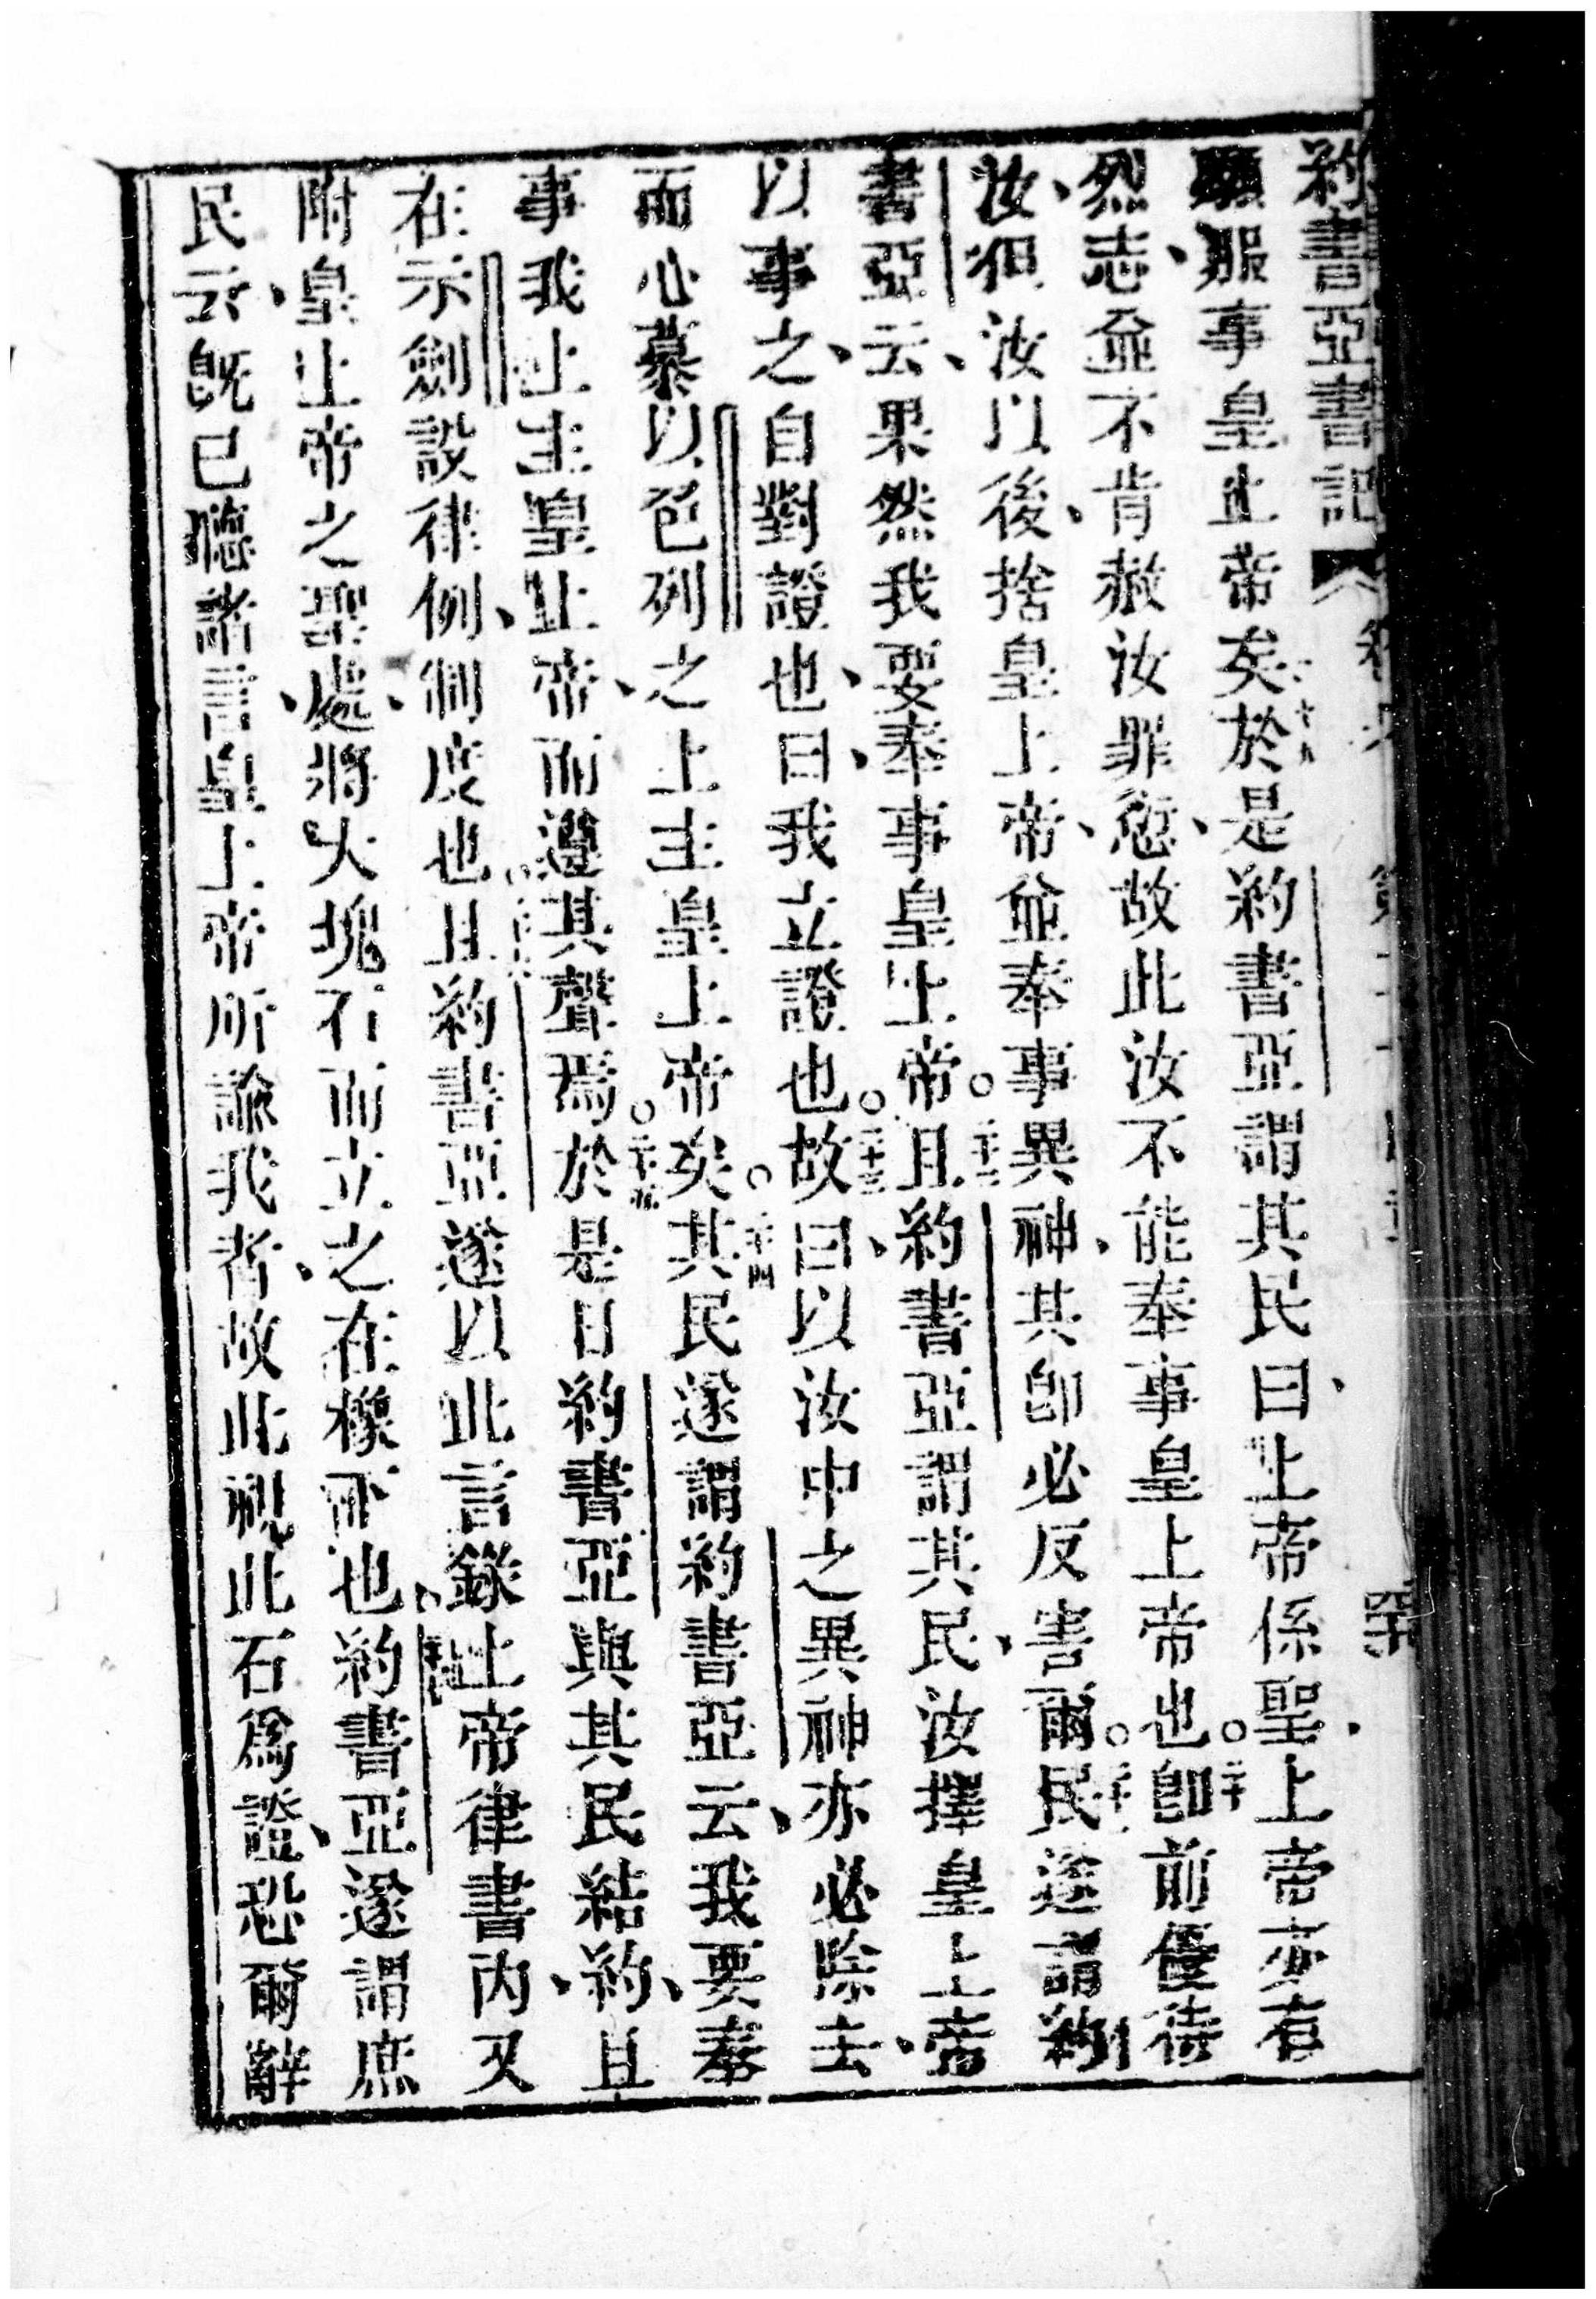 約書亞書記
願服事皇上帝矣、十九於是約書亞謂其民曰、上帝係聖、上帝專有
烈志、並不肯赦汝罪愆、故此汝不能奉事皇上帝也。二十卽前優待
汝、但汝以後、捨皇上帝、並奉事異神、其卽必反害爾。民遂謂約
書亞云、果然我要奉事皇上帝。二十二且約書亞謂其民、汝擇皇上帝、
以事之、自對證也、曰、我立證也。二十三故曰、以汝中之異神、亦必除去、
而心慕以色列之上主皇上帝矣。二十四其民遂謂約書亞云、我要奉
事我上主皇上帝、而遵其聲焉。二十五於是日約書亞與其民結約、且
在示劍設律例、制度也。且約書亞遂以此言錄上帝律書內、又
附皇上帝之聖處、將大塊石而立之在橡下也、約書亞遂謂庶
民云、旣已聽諸言、皇上帝所諭我者、故此視此石爲證、恐爾辭